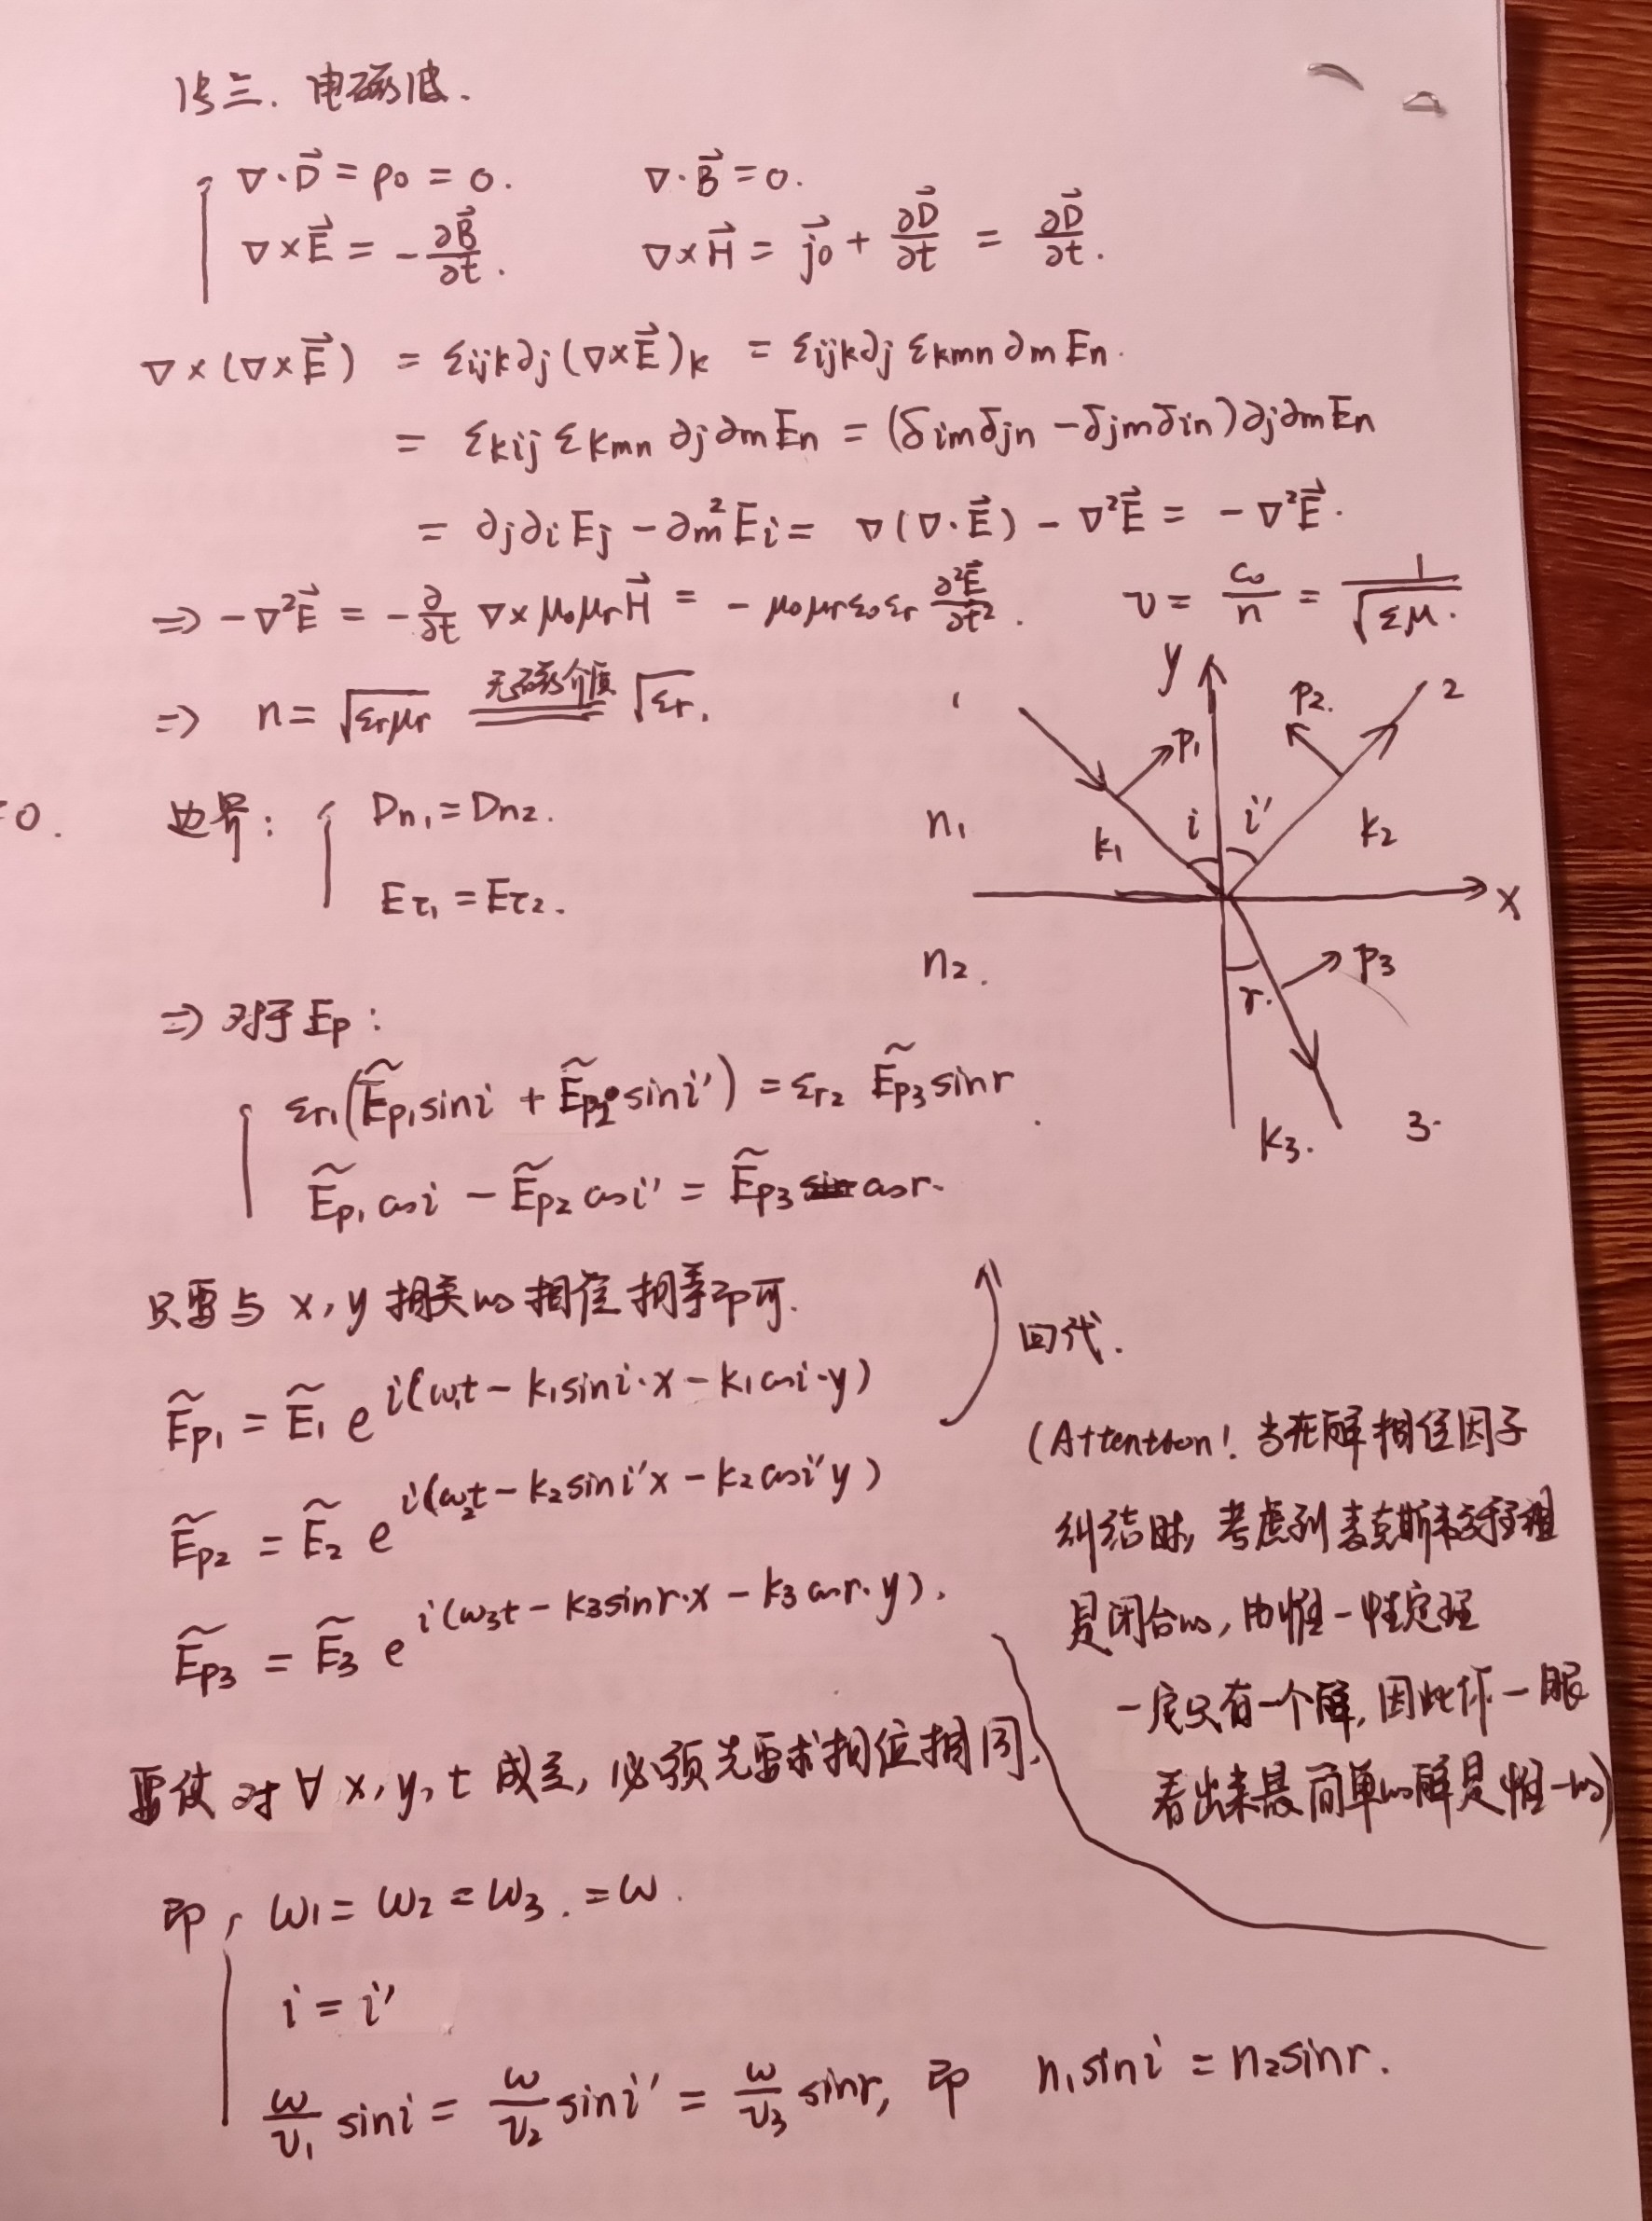 法三. 电磁波.
∇·D⃗ = ρ0 = 0. ∇·B⃗ = 0.
∇×E⃗ = -∂B⃗/∂t. ∇×H⃗ = j⃗0 + ∂D⃗/∂t = ∂D⃗/∂t.
∇×(∇×E⃗) = εijk∂j(∇×E⃗)k = εijk∂j εkmn ∂m En.
= εkij εkmn ∂j∂m En = (δimδjn - δjmδin)∂j∂m En
= ∂j∂i Ej - ∂m² Ei = ∇(∇·E⃗) - ∇²E⃗ = -∇²E⃗.
⇒ -∇²E⃗ = -∂/∂t ∇×μ0μrH⃗ = -μ0μrε0εr ∂²E⃗/∂t². v = c0/n = 1/√(εμ).
⇒ n = √(εrμr) 无磁介质 √εr.
y
1
p1
p2.
2
n1
k1
i
i'
k2
x
n2.
r.
p3
k3.
3.
=0.
边界: Dn1 = Dn2.
Eτ1 = Eτ2.
⇒ 对于Ep:
εr1(Ẽp1 sini + Ẽp2 sini') = εr2 Ẽp3 sinr.
Ẽp1 cosi - Ẽp2 cosi' = Ẽp3 cosr.
只需与 x, y 相关的相位相等即可.
回代.
Ẽp1 = Ẽ1 e^i(ω1t - k1sini·x - k1cosi·y)
Ẽp2 = Ẽ2 e^i(ω2t - k2sini'x - k2cosi'y)
Ẽp3 = Ẽ3 e^i(ω3t - k3sinr·x - k3cosr·y).
(Attention! 当在解相位因子
纠结时, 考虑到麦克斯韦方程组
是闭合的, 由惟一性定理
一定只有一个解, 因此你一眼
看出来最简单的解是惟一的)
要使对 ∀ x, y, t 成立, 必须先要求相位相同.
即 ω1 = ω2 = ω3. = ω.
i = i'
ω/v1 sini = ω/v2 sini' = ω/v3 sinr, 即 n1sini = n2sinr.